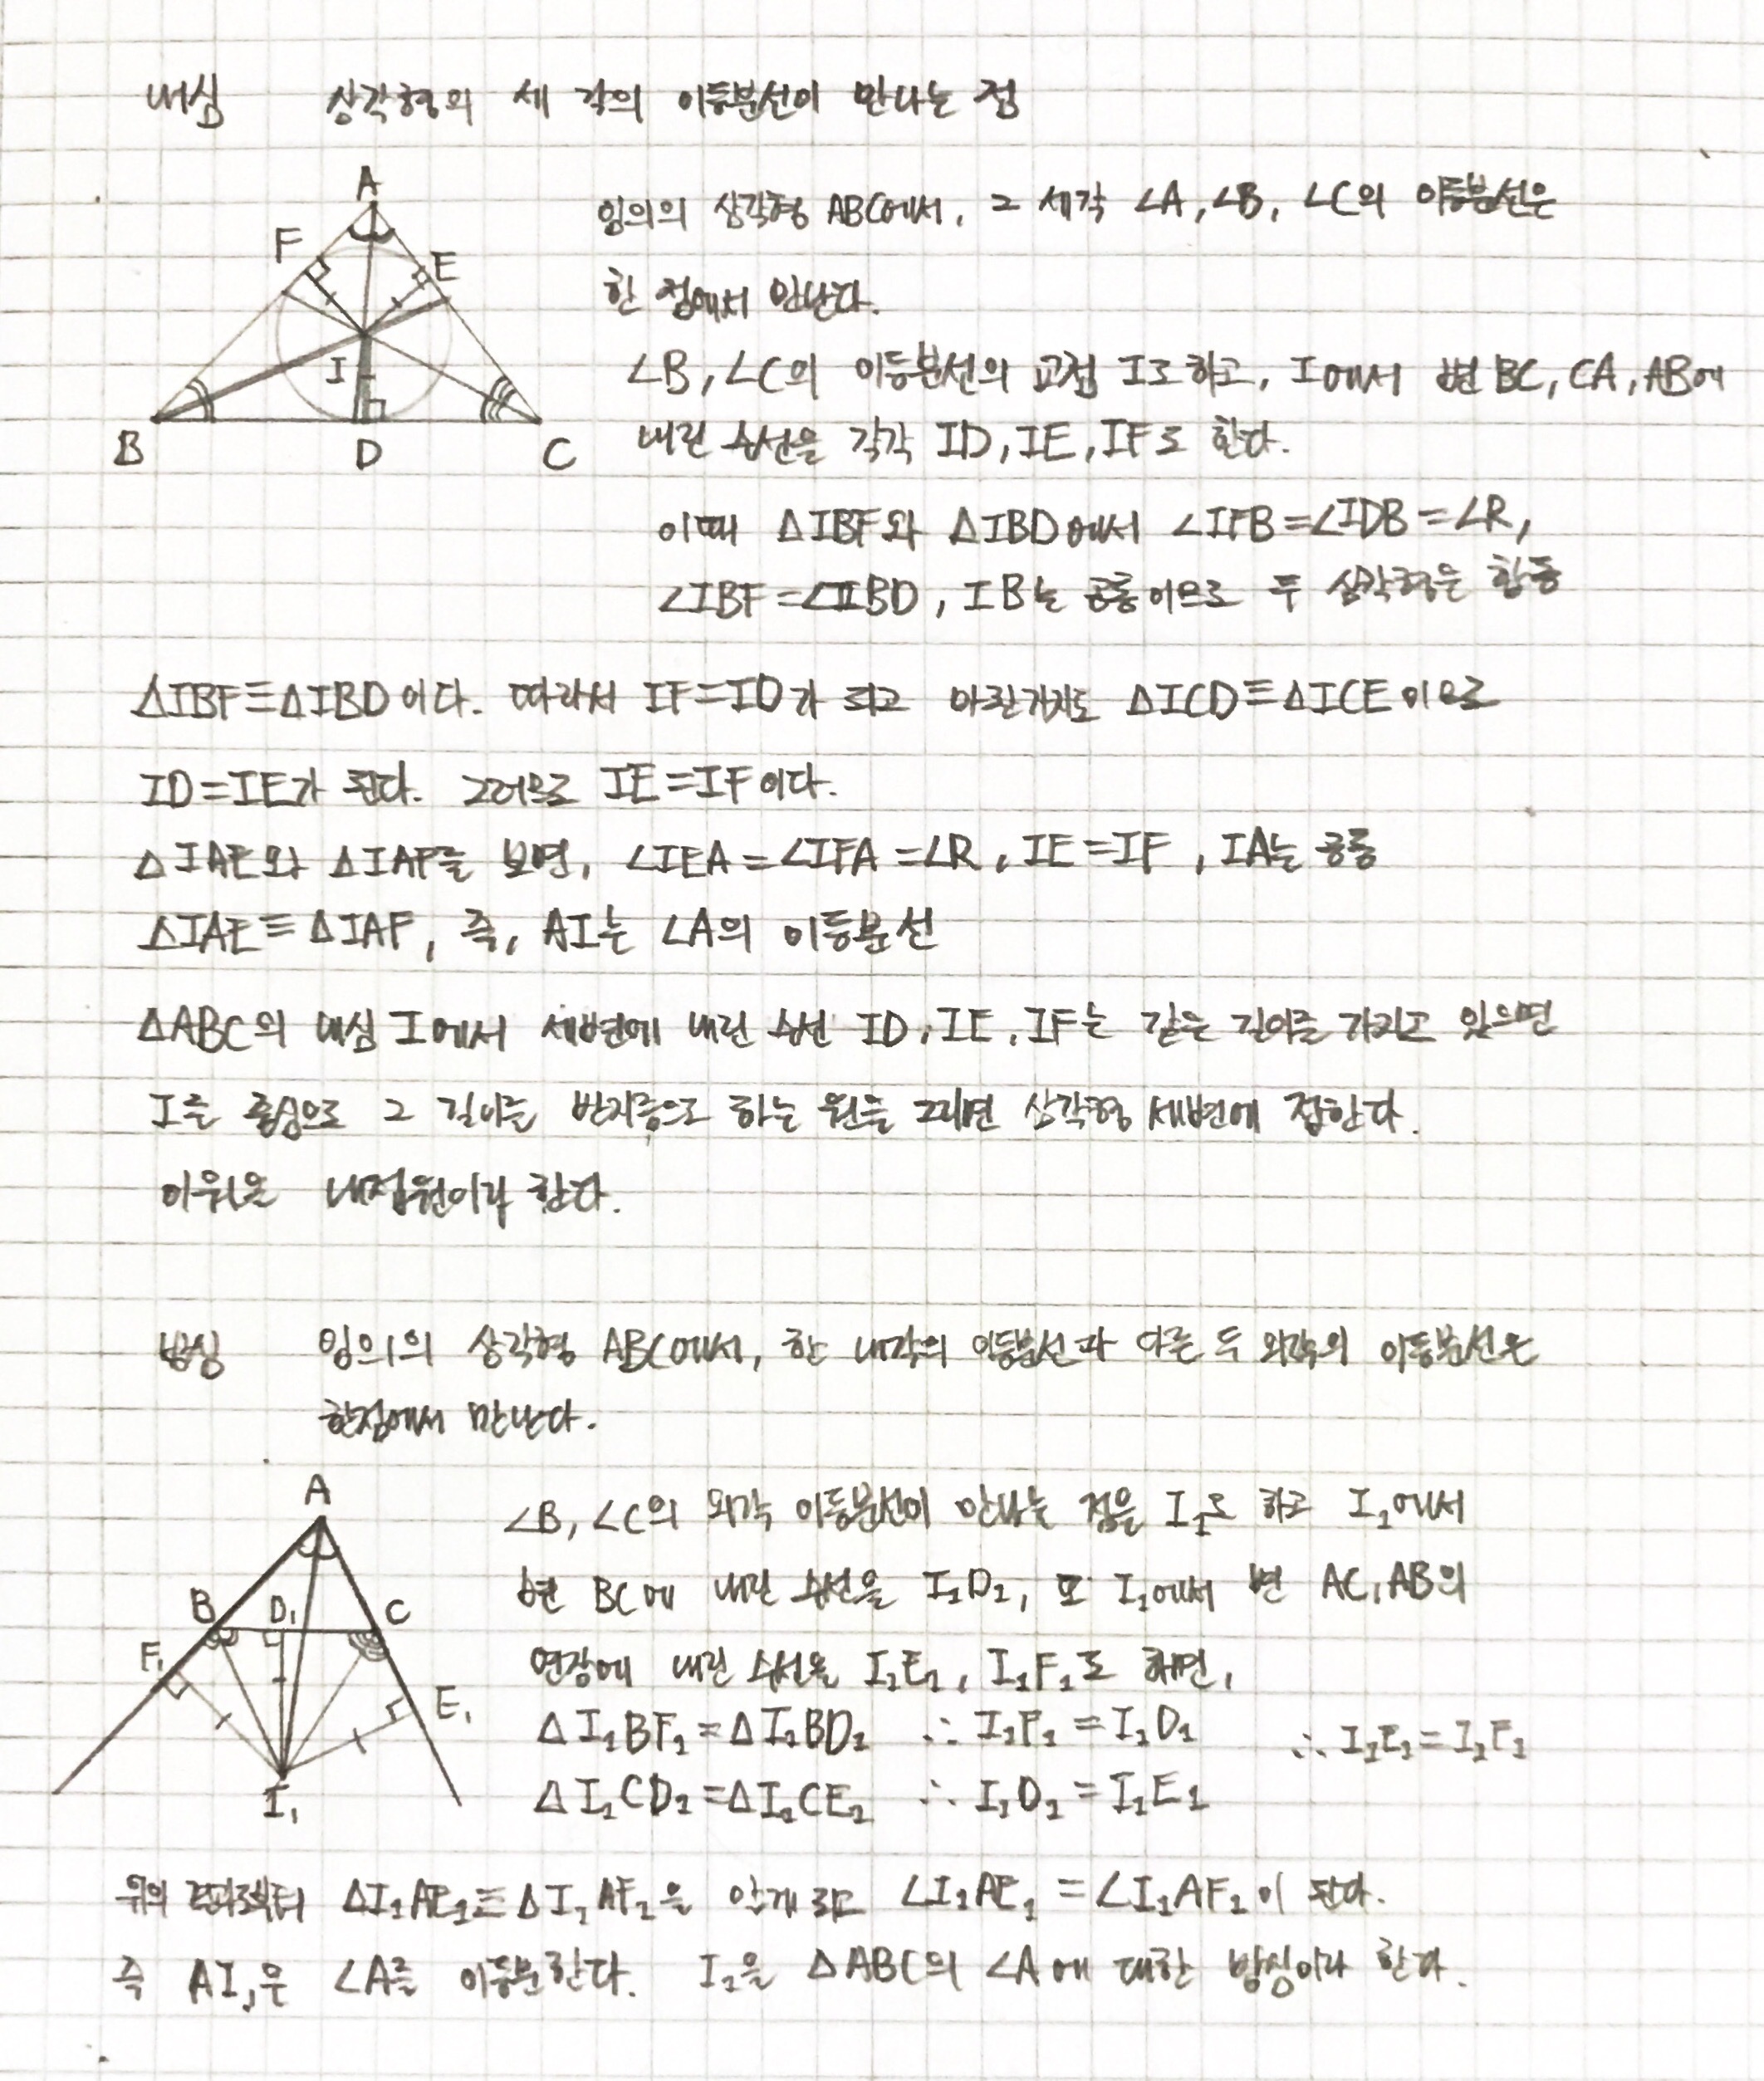 내심 삼각형의 세 각의 이등분선이 만나는 점
A
F
E
I
B
D
C
임의의 삼각형 ABC에서, 그 세각 ∠A, ∠B, ∠C의 이등분선은
한 점에서 만난다.
∠B, ∠C의 이등분선의 교점 I로 하고, I에서 변 BC, CA, AB에
내린 수선을 각각 ID, IE, IF로 한다.
이때 △IBF와 △IBD에서 ∠IFB=∠IDB=∠R,
∠IBF=∠IBD, IB는 공통이므로 두 삼각형은 합동
△IBF≡△IBD이다. 따라서 IF=ID가 되고 마찬가지로 △ICD≡△ICE이므로
ID=IE가 된다. 그러므로 IE=IF이다.
△IAE와 △IAF를 보면, ∠IEA=∠IFA=∠R, IE=IF, IA는 공통
△IAE≡△IAF, 즉, AI는 ∠A의 이등분선
△ABC의 내심 I에서 세변에 내린 수선 ID, IE, IF는 같은 길이를 가지고 있으면
I를 중심으로 그 길이를 반지름으로 하는 원을 그리면 삼각형 세변에 접한다.
이원을 내접원이라 한다.
방심 임의의 삼각형 ABC에서, 한 내각의 이등분선과 다른 두 외각의 이등분선은
한점에서 만난다.
A
B
D₁
C
F₁
E₁
I₁
∠B, ∠C의 외각 이등분선이 만나는 점을 I₁로 하고 I₁에서
변 BC에 내린 수선을 I₁D₁, 또 I₁에서 변 AC, AB의
연장에 내린 수선을 I₁E₁, I₁F₁로 하면,
△I₁BF₁=△I₁BD₁ ∴ I₁F₁=I₁D₁ ∴ I₁E₁=I₁F₁
△I₁CD₁=△I₁CE₁ ∴ I₁D₁=I₁E₁
위의 결과로부터 △I₁AE₁≡△I₁AF₁을 알게 되고 ∠I₁AE₁=∠I₁AF₁이 된다.
즉 AI₁은 ∠A를 이등분한다. I₁을 △ABC의 ∠A에 대한 방심이라 한다.